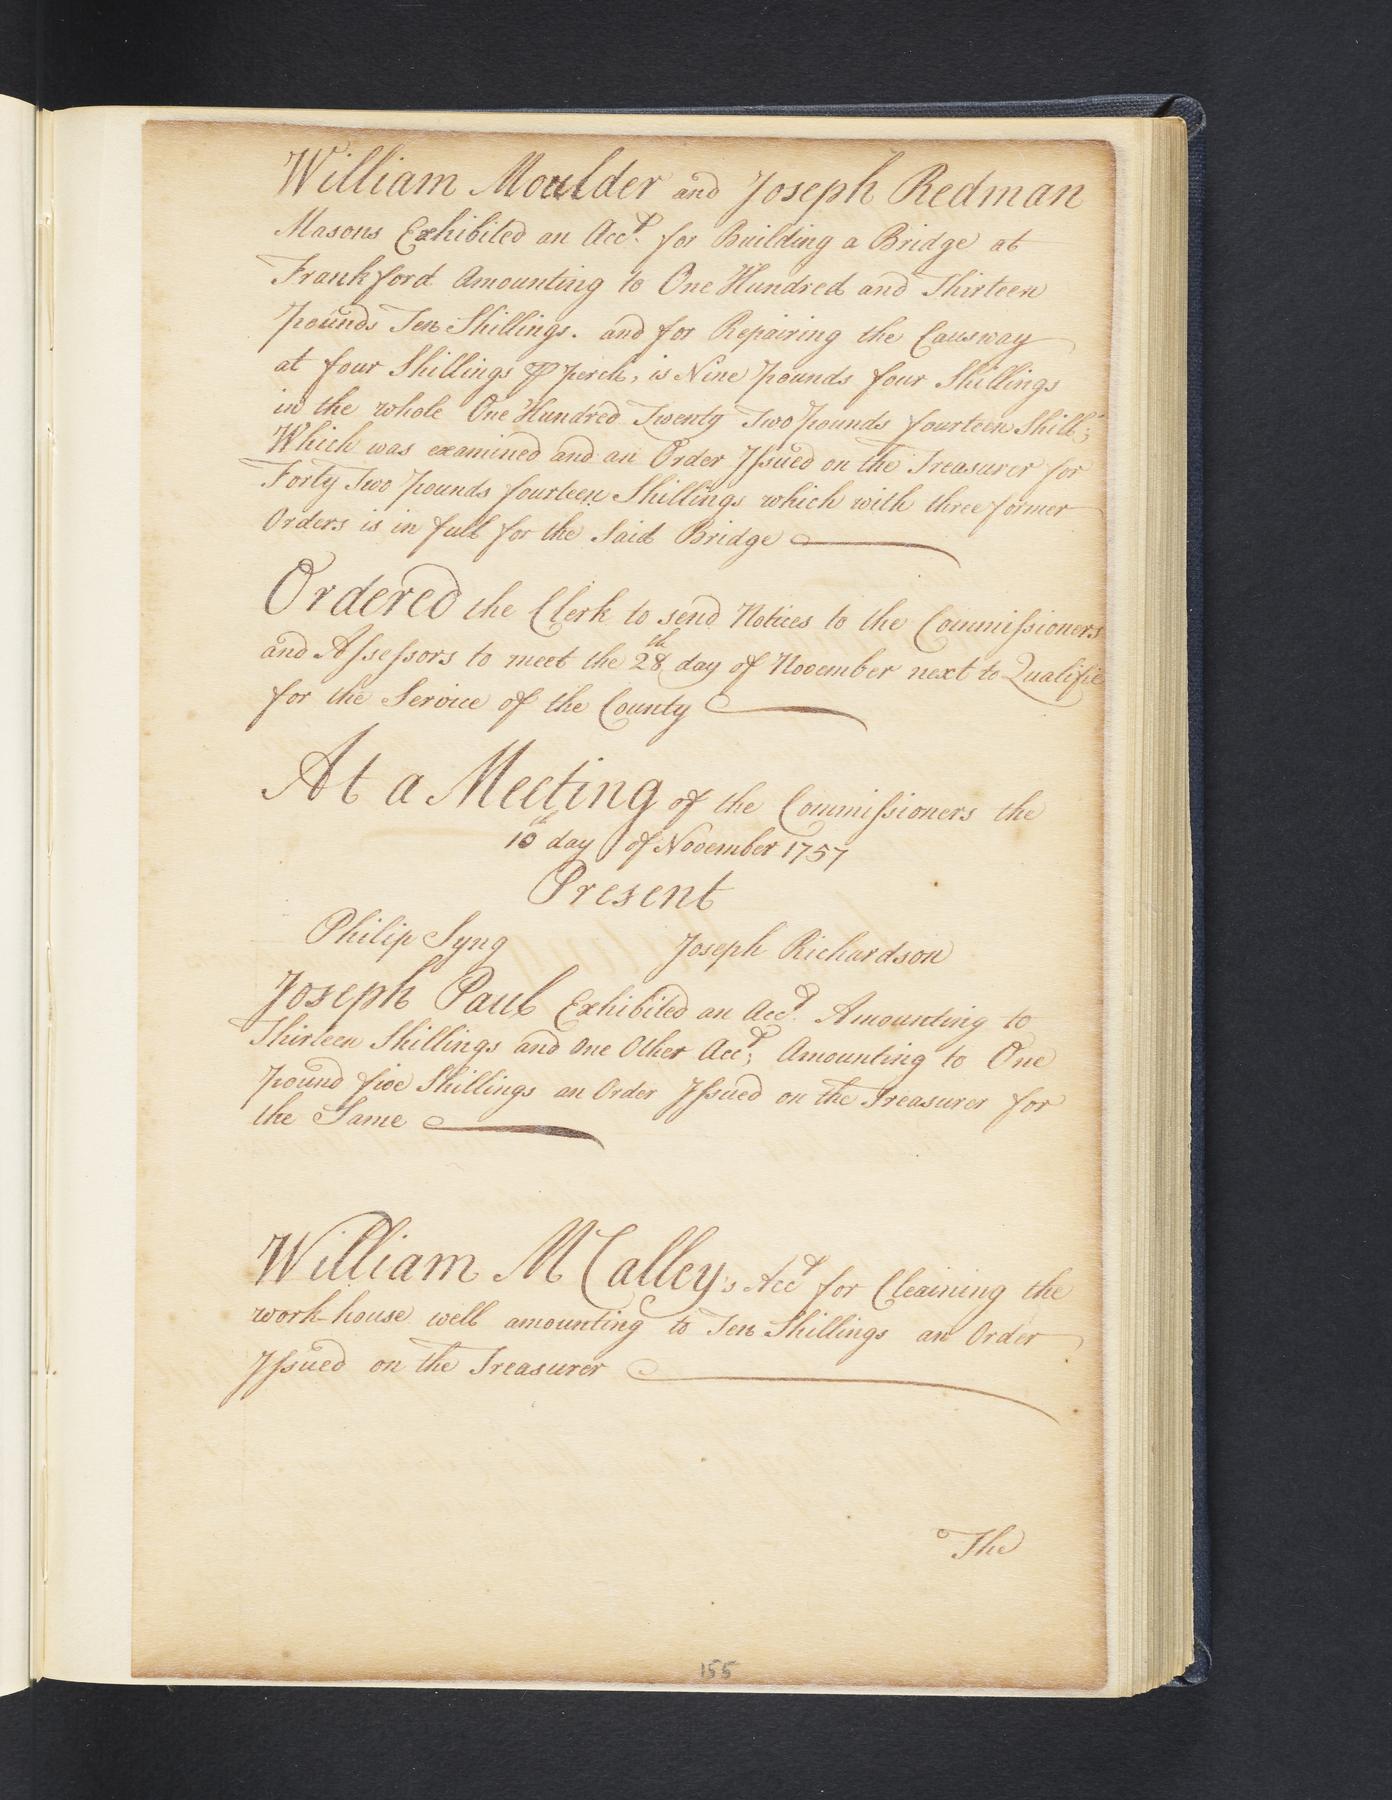 William Moulder and Joseph Redman
Masons Exhibited an Acct. for Building a Bridge at
Frankford Amounting to One Hundred and Thirteen
pounds Ten Shillings. and for Repairing the Causway
at four Shillings ⅌ perch, is Nine pounds four Shillings
in the whole One Hundred Twenty Two pounds fourteen Shills;
Which was examined and an Order Issued on the Treasurer for
Forty Two pounds fourteen Shillings which with three former
Orders is in full for the Said Bridge
Ordered the Clerk to send Notices to the Commissioners
and Assessors to meet the 28th day of November next to Qualifie
for the Service of the County
At a Meeting of the Commissioners the
10th day of November 1757
Present
Philip Syng Joseph Richardson
Joseph Paul Exhibited an Acct. Amounting to
Thirteen Shillings and one Other Acct; Amounting to One
pound five Shillings an Order Issued on the Treasurer for
the Same
William MCalley,s Acct for Cleaining the
work-house well amounting to Ten Shillings an Order
Issued on the Treasurer
The
155